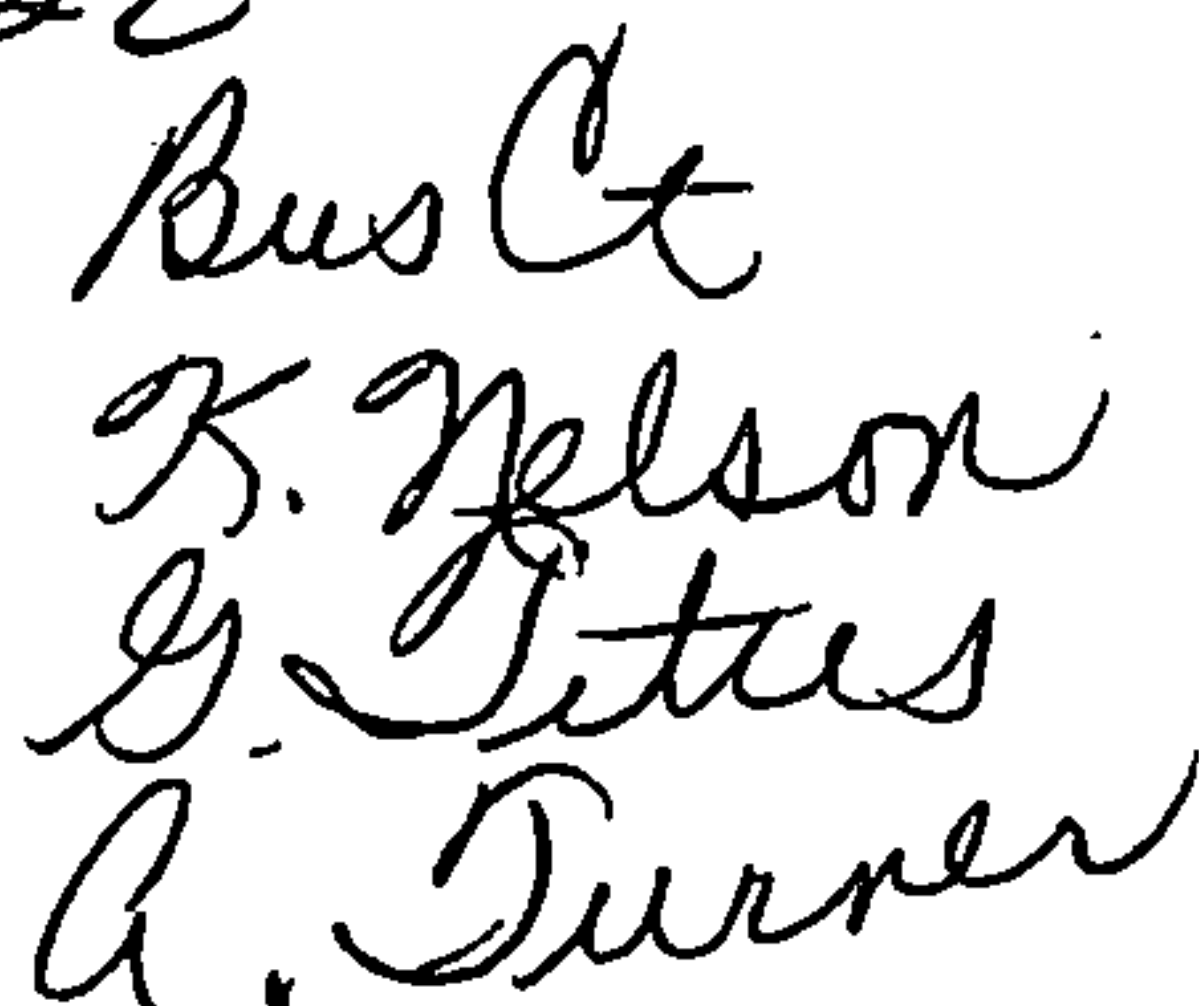 Bus Ct
K. Nelson
G. Titus
A. Turner